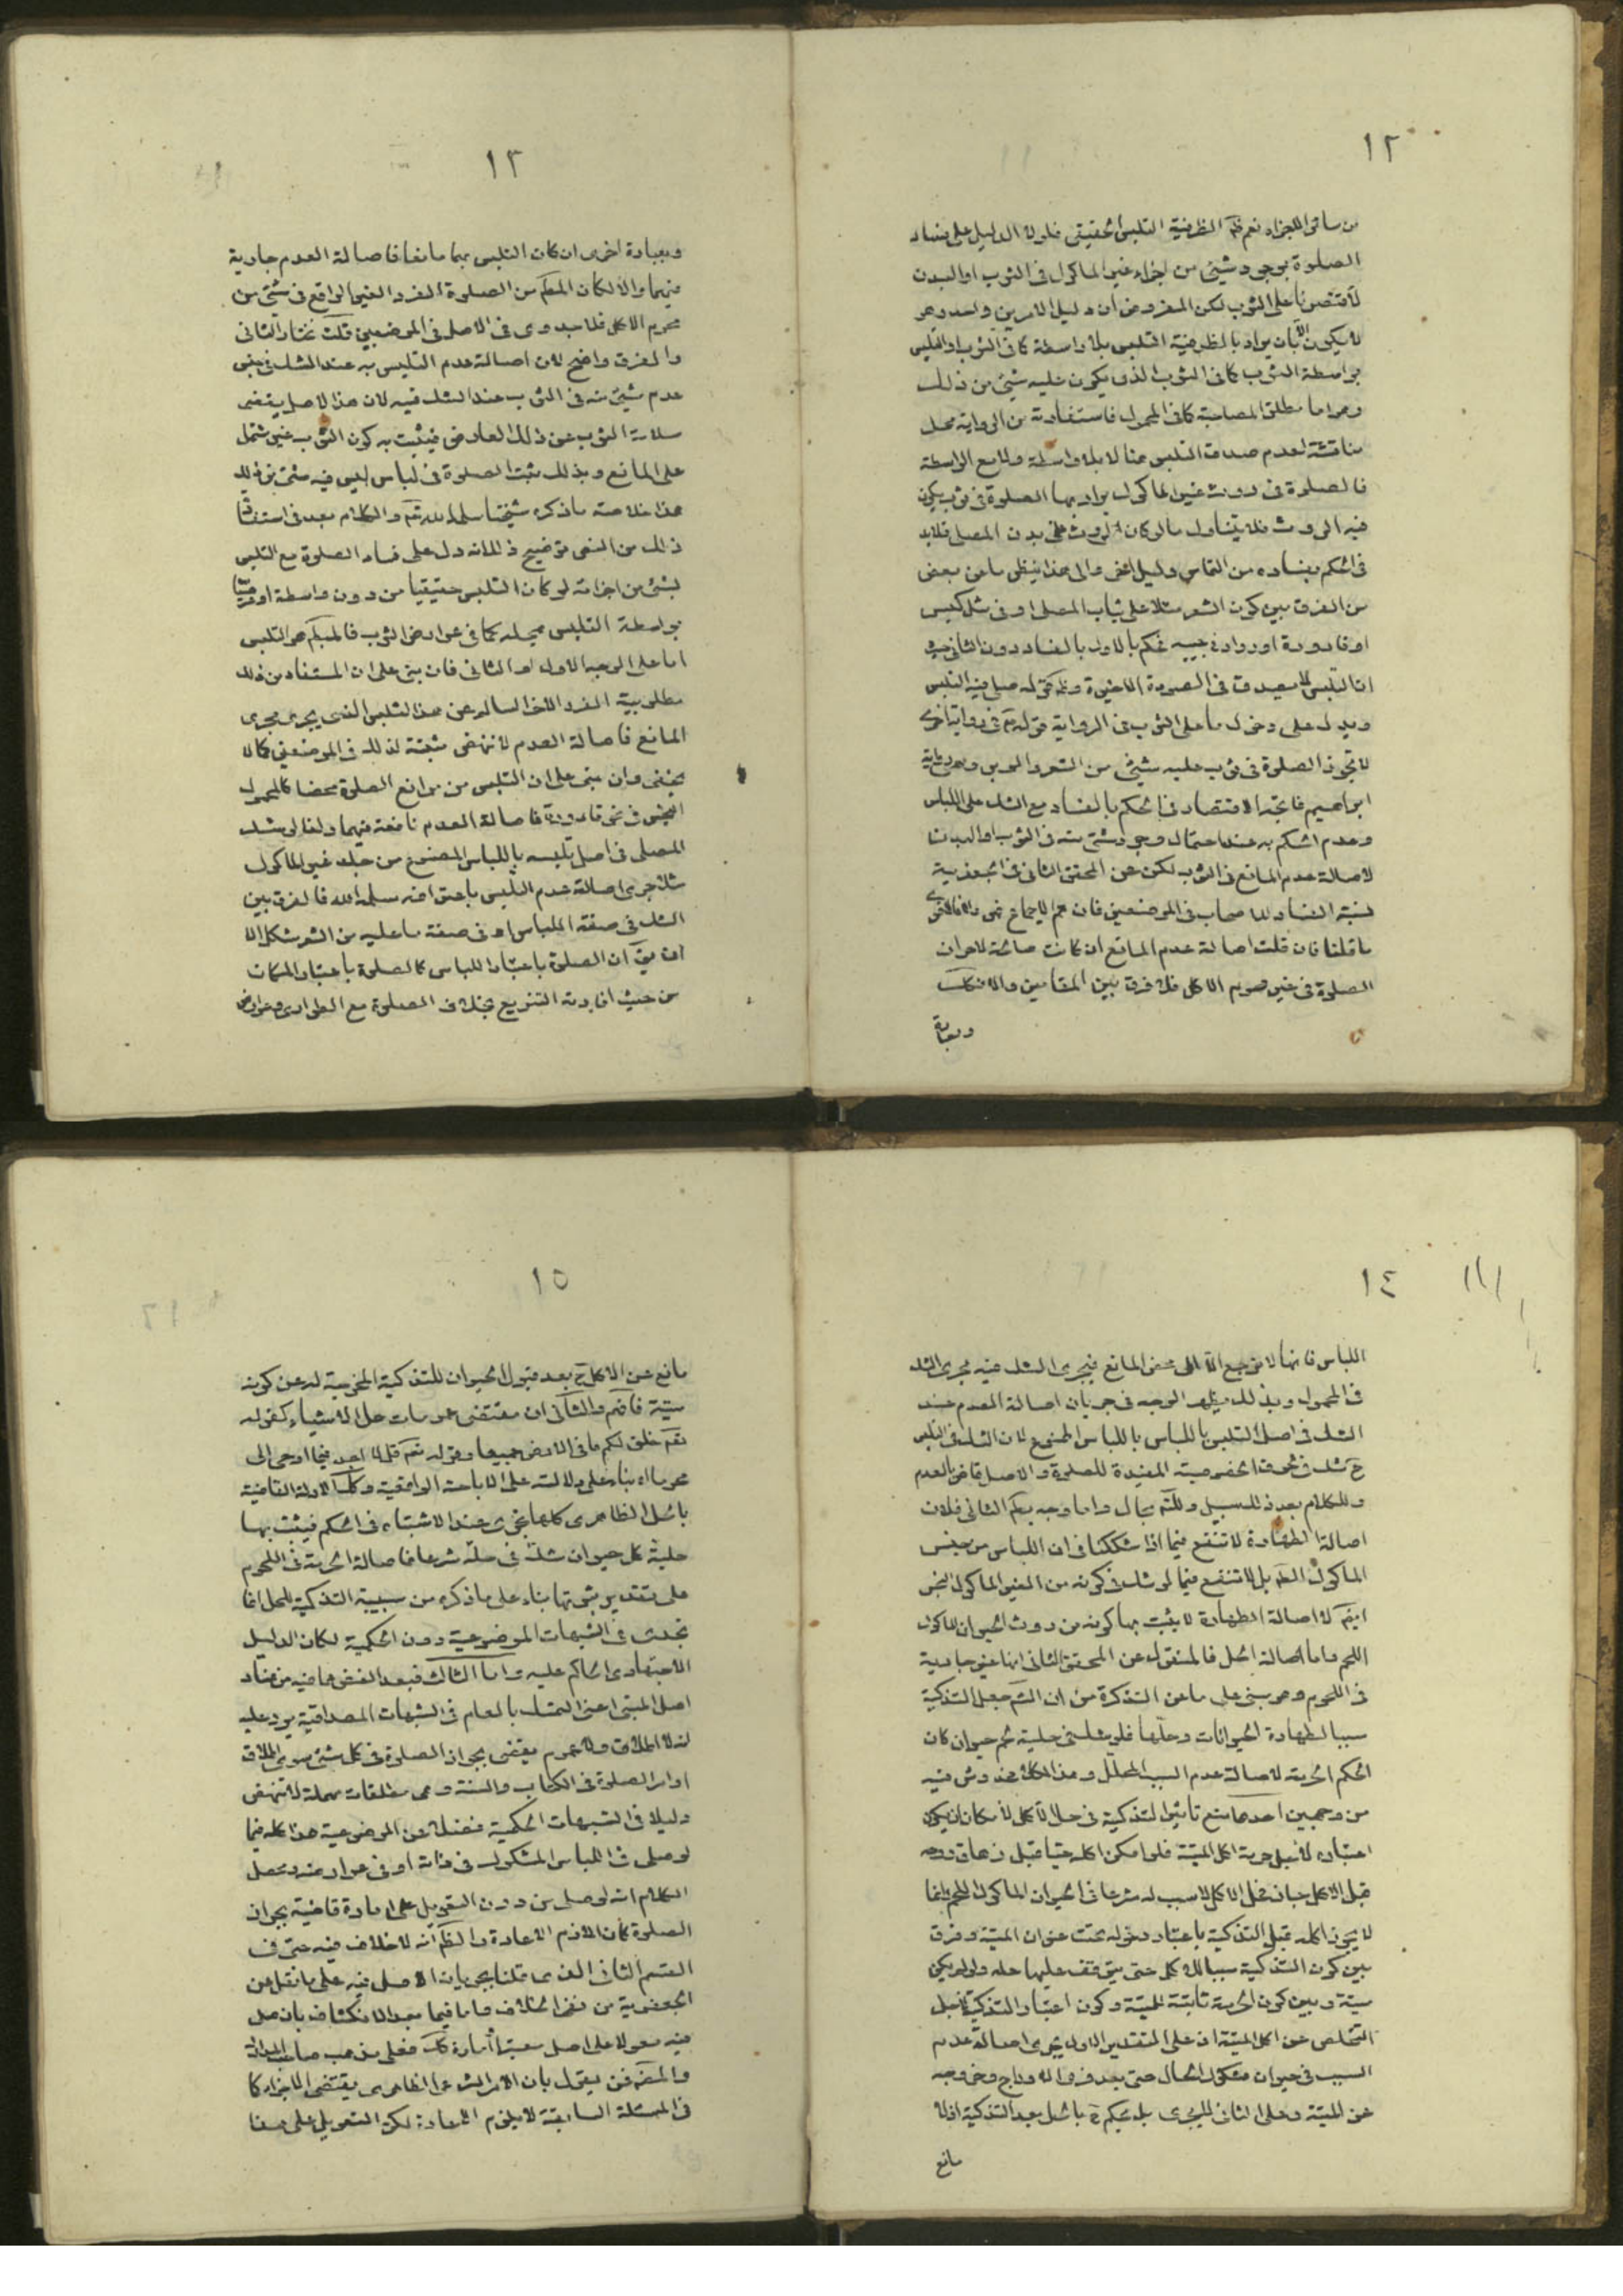 ١٢
من سائر الاجزاء نعم ظ الظرفية التلبس الحقيقي فلولا الدليل على فساد
الصلوة بوجود شيئ من اجزاء غير الماكول في الثوب او البدن
لاقتصرنا على الثوب لكن المفروض ان دليل الامرين واحد وهو
لا يكون الا بان يراد بالظرفية التلبس بلا واسطة كما في الثوب او التلبس
بواسطة الثوب كما في الثوب الذي يكون عليه شيئ من ذلك
واما مطلق المصاحبة كما في المحمول فاستفادته من الرواية محل
مناقشة لعدم صدق التلبس هنا لا بلا واسطة ولا مع الواسطة
فالصلوة في روث غير الماكول يراد بها الصلوة في ثوب يكون
فيه الروث فلا يتناول ما لو كان الروث على بدن المصلي فلا بد
في الحكم بفساده من التماس دليل اخر والى هذا ينظر ما عن بعض
من الفرق بين كون الشعر مثلا على ثياب المصلي او في مثل كيس
او قارورة اورداء في جيبه فحكم بالاول بالفساد دون الثاني
اذ التلبس لا يصدق في الصورة الاخيرة
ويدل على دخول ما على الثوب في الرواية قوله في رواية اخرى
لا تجوز الصلوة في ثوب عليه شيئ من الشعر والوبر وهي رواية
ابراهيم فاتجه الاقتصار في الحكم بالفساد مع الشك على اللباس
وعدم الحكم به عند احتمال وجود شيئ منه في الثوب او البدن
لاصالة عدم المانع في الثوب لكن عن المحقق الثاني في الجعفرية
نسبة الفساد للاصحاب في الموضعين فان تم الاجماع فهو والا فالاقوى
ما قلنا فان قلت اصالة عدم المانع ان كانت صالحة لاحراز
الصلوة في غير محرم الاكل فلا فرق بين المقامين والا فكك
وبعبارة
١٣
وبعبارة اخرى ان كان التلبس بهما مانعا فاصالة العدم جارية
فيهما والا لكان المحكم من الصلوة الفرد الغير الواقع في شيئ من
محرم الاكل فلا جدوى في الاصل في الموضعين قلت نختار الثاني
والفرق واضح لان اصالة عدم التلبس به عند الشك في
عدم شيئ منه في الثوب عند الشك فيه لان هذا الاصل يقتضي
سلامة الثوب عن ذلك العارض فيثبت به كون الثوب غير مشتمل
على المانع وبذلك يثبت الصلوة في لباس ليس فيه شيئ من ذلك
هذا خلاصة ما ذكره شيخنا سلمه الله تع والكلام بعد في استفادة
ذلك من النص توضيح ذلك انه دل على فساد الصلوة مع التلبس
بشئ من اجزائه لو كان التلبس حقيقيا من دون واسطة او عرفيا
بواسطة التلبس بمحله كما في عوارض الثوب فالمحكم هو التلبس
اما على الوجه الاول او الثاني فان بنى على ان المستفاد من ذلك
مطلوبية الفرد الاخر السالم عن هذا التلبس الذي يجري مجرى
المانع فاصالة العدم لا تنهض مثبتة لذلك في الموضعين كما لا
يخفى وان بنى على ان التلبس من موانع الصلوة محضا كالمحمول
النجس في نحو قارورة فاصالة العدم نافعة فيهما ولذا لو شك
المصلي في اصل تلبسه باللباس المصنوع من جلد غير الماكول
مثلا جرى اصالة عدم التلبس باعترافه سلمه الله فالفرق بين
الشك في صفة اللباس او في صفة ما عليه من الشعر مشكل الا
ان يق ان الصلوة باعتبار اللباس كالصلوة باعتبار المكان
من حيث افادته التنويع بخلاف الصلوة مع الطوارئ وعوارض
١٤
اللباس فانها لا ترجع الا الى محض المانع فيجري الشك فيه مجرى الشك
في المحمول وبذلك يظهر الوجه في جريان اصالة العدم عند
الشك في اصل التلبس باللباس المصنوع لان الشك في التلبس
ح شك في تحقق الخصوصية المفيدة للصلوة والاصل قاض بالعدم
وللكلام بعد في المسبيل وللتم مجال واما وجه بحكم الثاني فلان
اصالة الطهارة لا تنفع فيما اذا شككنا في ان اللباس من جنس
الماكول اللحم بل لا تنفع فيما لو شك في كونه من الغير الماكول النجس
ايضم لان اصالة الطهارة لا يثبت بها كونه من روث الحيوان الماكول
اللحم واما اصالة الحل فالمنقول عن المحقق الثاني انها غير جارية
في اللحوم وهو مبنى على ما عن التذكرة من ان الشم جعل التذكية
سببا لطهارة الحيوانات وحلها فلو شك في حلية لحم حيوان كان
الحكم الحرمة لاصالة عدم السبب المحلل وهذا الكلام مخدوش فيه
من وجهين احدهما منع تاثير التذكية في حل الاكل لامكان ان يكون
اعتباره لاجل حرمة اكل الميتة فلو امكن اكله حيا قبل زهاق روحه
قبل الاكل جاز فحل الاكل لا سبب له شرعا في الحيوان الماكول اللحم وانما
لا يجوز اكله قبل التذكية باعتبار دخوله تحت عنوان الميتة وفرق
بين كون التذكية سببا للاكل حتى يتوقف عليها حله ولو لم يكن
ميتة وبين كون الحرمة ثابتة للميتة وكون اعتبار التذكية لاجل
التخلص عن اكل الميتة اذ على التقدير الاول يجري اصالة عدم
السبب في حيوان مشكوك الحال حتى بعد فري الاوداج وخروجه
عن الميتة وعلى الثاني لا يجري بل يحكم ح بالحل بعد التذكية اذ لا
مانع
١٥
مانع عن الاكل ح بعد قبول الحيوان للتذكية المخرجة له عن كونه
ميتة فافهم والثاني ان مقتضى عمومات حل الاشياء كقوله
تعم خلق لكم ما في الارض جميعا وقوله تعم قل لا اجد فيما اوحي الي
محرما اه بناء على دلالته على الاباحة الواقعية وكك الادلة القاضية
بالحل الظاهري كلها تجري عند الاشتباه في الحكم فيثبت بها
حلية كل حيوان شك في حله شرعا فاصالة الحرمة في اللحوم
على تقدير ثبوتها بناء على ما ذكره من سببية التذكية للحل انما
تجدى في الشبهات الموضوعية دون الحكمية لمكان الدليل
الاجتهادي الحاكم عليه واما الثالث فبعد الغض عما فيه من فساد
اصل المبنى اعني التمسك بالعام في الشبهات المصداقية يرد عليه
انه لا اطلاق ولا عموم يقتضي بجواز الصلوة في كل شئ سوى اطلاق
اوامر الصلوة في الكتاب والسنة وهي مطلقات مهملة لا تنهض
دليلا في الشبهات الحكمية فضلا عن الموضوعية هذا كله فيما
لو صلى في اللباس المشكوك في ذاته او في عوارضه ومحصل
الكلام انه لو صلى من دون التعويل على امارة قاضية بجواز
الصلوة كان اللازم الاعادة والظم انه لا خلاف فيه حتى في
القسم الثاني الذي قلنا بجريان الاصل فيه على ما نقل عن
الجعفرية من نفي الخلاف واما فيما بعد الانكشاف بان صلى
فيه معولا على اصل معتبر او امارة كك فعلى مذهب صاحب المدارك
والمض فن يعول بان الامر الشرعي الظاهري يقتضي الاجزاء كما
في المسئلة السابقة لا يلزم الاعادة لكن التعويل على هذا